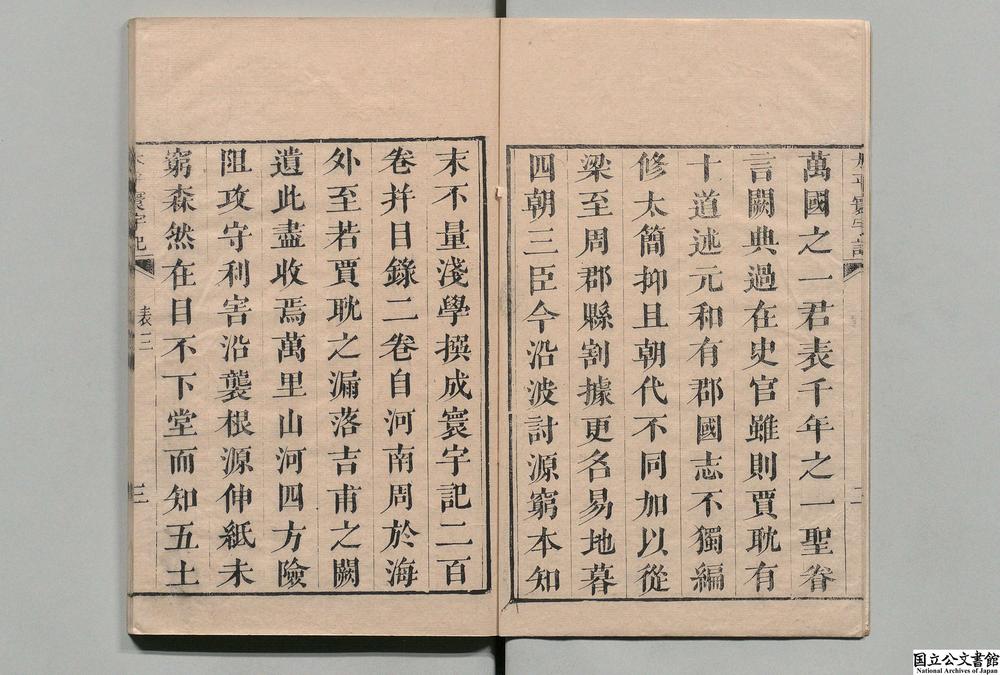 萬國之一君表千年之一聖眷
言闕典過在史官雖則賈耽有
十道述元和有郡國志不獨編
修太簡抑且朝代不同加以從
梁至周郡縣割據更名易地暮
四朝三臣今沿波討源窮本知
末不量淺學撰成寰宇記二百
卷并目錄二卷自河南周於海
外至若賈耽之漏落吉甫之闕
遺此盡收焉萬里山河四方險
阻攻守利害沿襲根源伸紙未
窮森然在目不下堂而知五土
寰宇記
表三
三
国立公文書館
National Archives of Japan